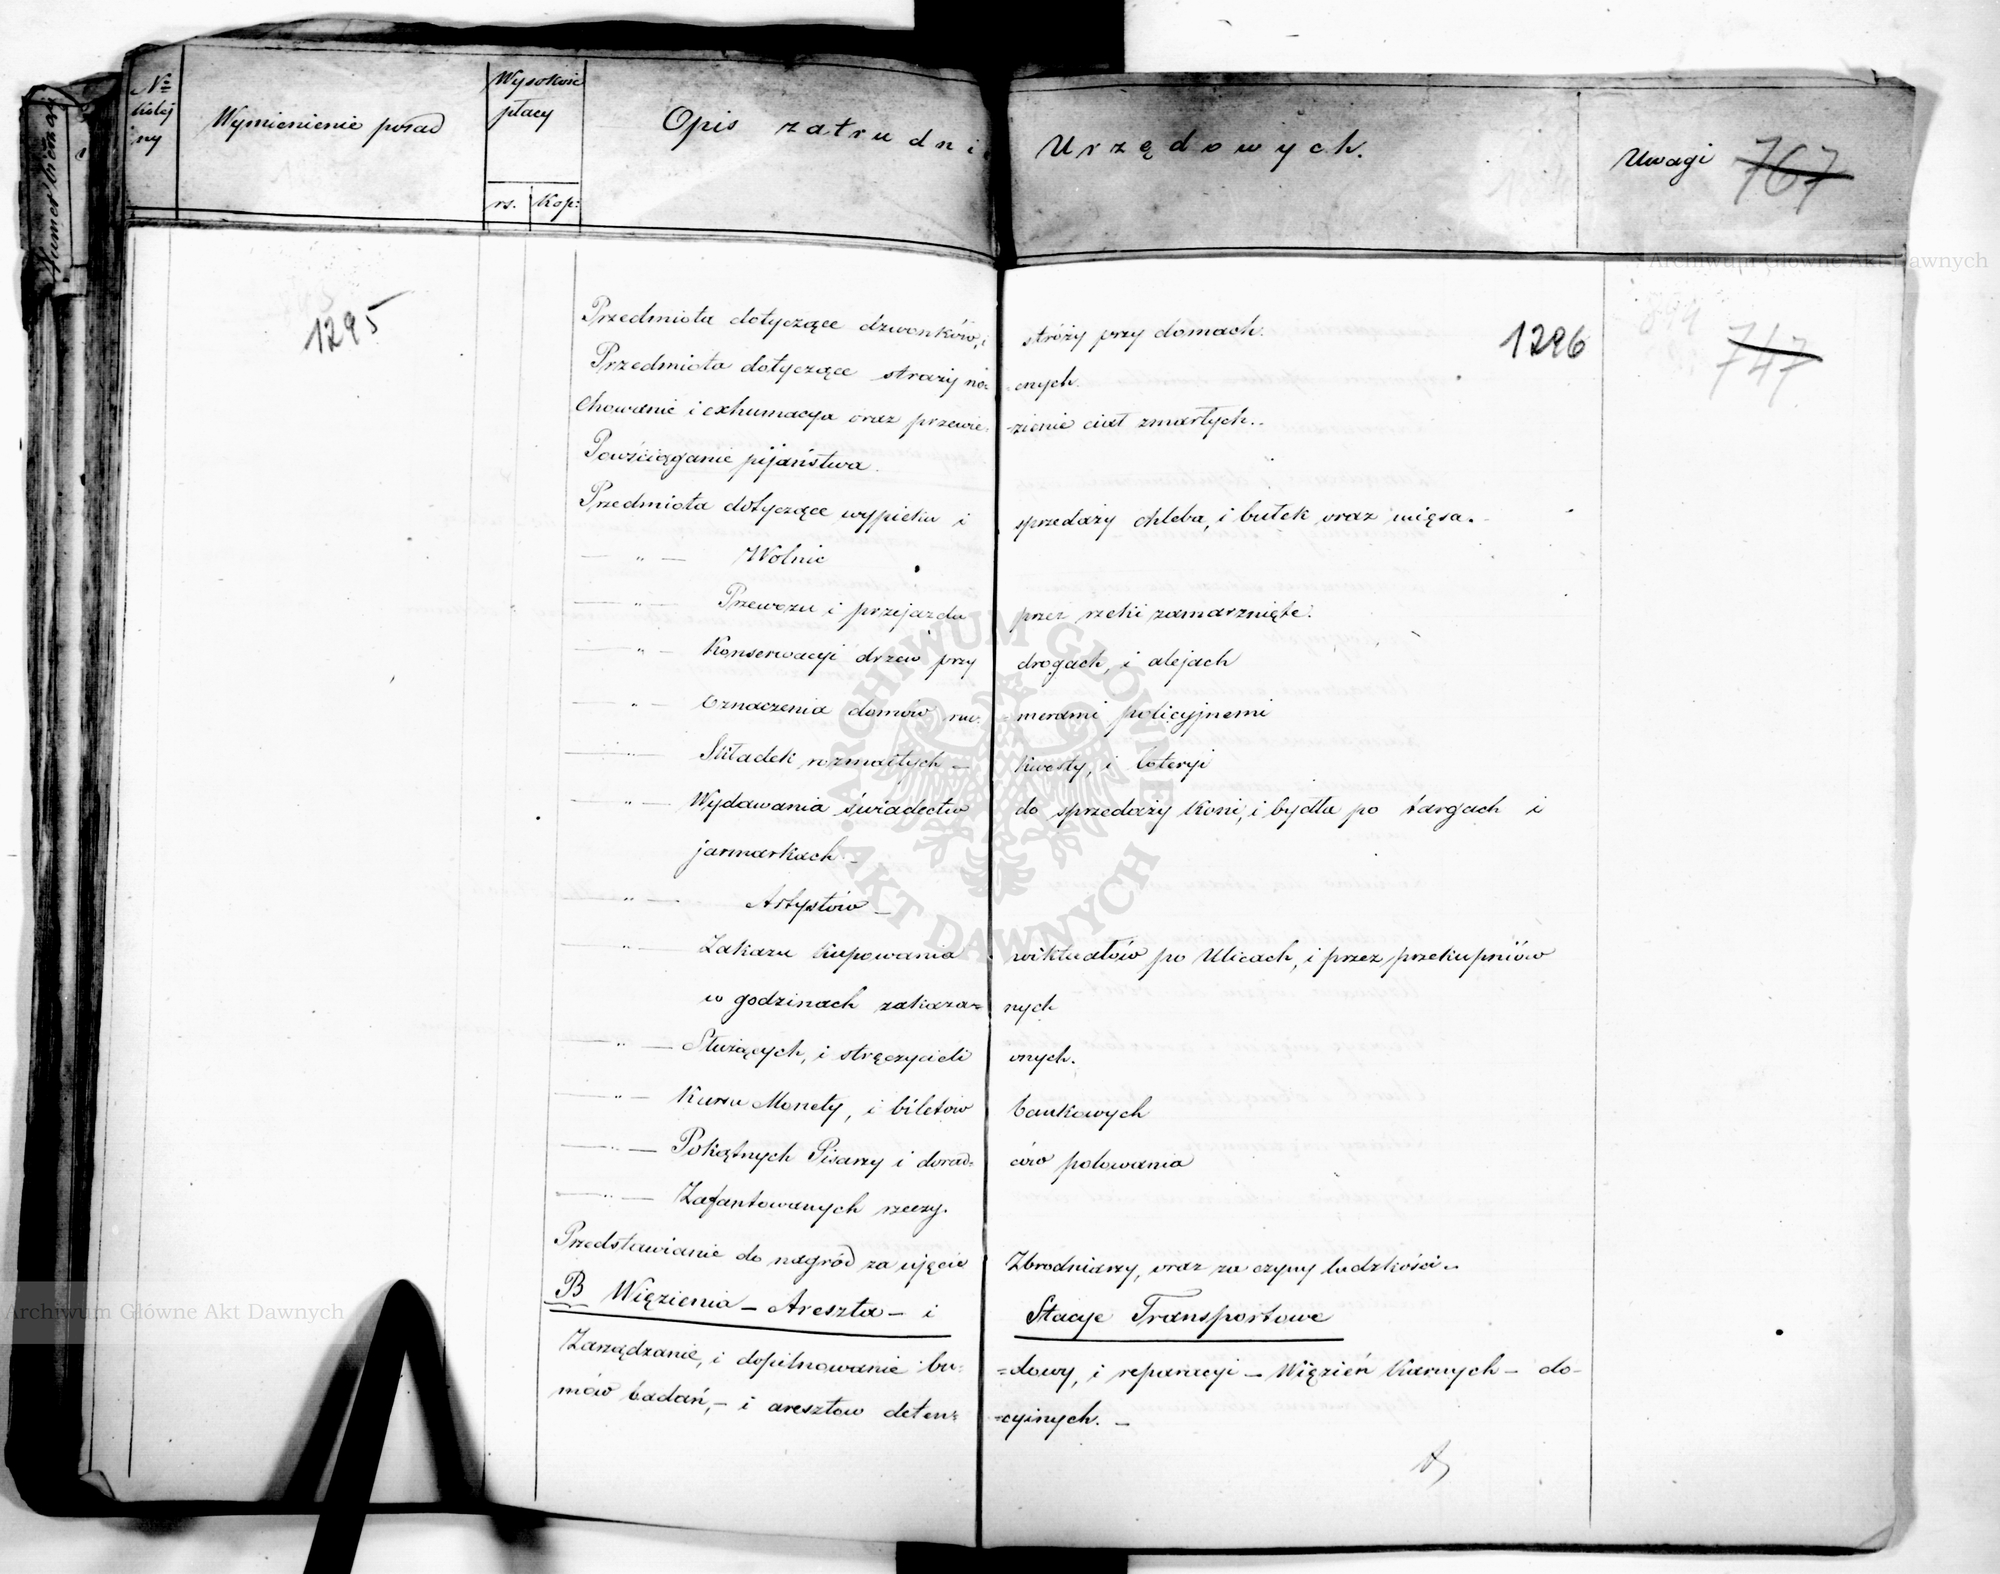 Nº
kolej
ny
Wymienienie posad
Wysokość
płacy
rs. Kop:
Opis zatrudni Urzędowych.
Uwagi
767
Numer bieżący
1295
1296
747
Przedmiota dotyczące dzwonków, i stróży przy domach.
Przedmiota dotyczące straży no= =cnych.
Chowanie i exhumacya oraz przewie= =zienie ciał zmarłych..
Powściąganie pijaństwa.
Przedmiota dotyczące wypieku i sprzedaży chleba, i bułek oraz mięsa.
— „ — Wolnic
— „ — Przewozu i przejazdu przez rzeki zamarznięte.
— „ — Konserwacyi drzew przy drogach, i alejach
— „ — Oznaczenia domów nu= =merami policyjnemi
— „ — Składek rozmaitych — kwesty, i loteryi
— „ — Wydawania świadectw do sprzedaży koni, i bydła po targach i
jarmarkach —
— „ — Artystów —
— „ — Zakazu kupowania wiktuałów po Ulicach, i przez przekupniów
w godzinach zakaza= nych
— „ — Służących, i stręczycieli onych.
— „ — Kursu Monety, i biletów bankowych
— „ — Pokątnych Pisarzy i dorad= ców polowania
— „ — Zafantowanych rzeczy.
Przedstawianie do nagród za ujęcie Zbrodniarzy, oraz za czyny ludzkości.
B Więzienia — Areszta — i Stacye Transportowe
Zarządzanie, i dopilnowanie bu= =dowy, i reparacyi — Więzień Karnych — do-
mów badań, — i aresztów deten= =cyjnych. —
Archiwum Główne Akt Dawnych
Archiwum Główne Akt Dawnych
ARCHIWUM GŁÓWNE AKT DAWNYCH